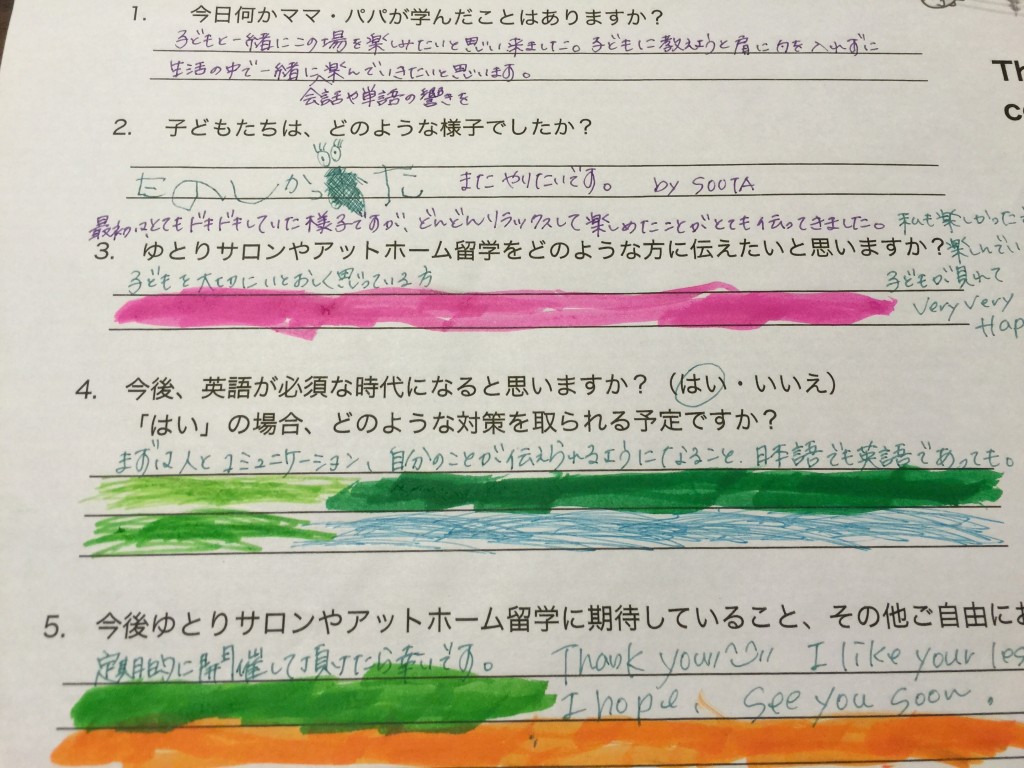 1. 今日何かママ・パパが学んだことはありますか？
子どもと一緒にこの場を楽しみたいと思い来ました。子どもに教えようと肩に力を入れずに
生活の中で一緒に楽しんでいきたいと思います。
会話や単語の響きを
2. 子どもたちは、どのような様子でしたか？
たのしかった またやりたいです。 by SOOTA
最初はとてもドキドキしていた様子ですが、どんどんリラックスして楽しめたことがとても伝ってきました。私も楽しかった
3. ゆとりサロンやアットホーム留学をどのような方に伝えたいと思いますか？楽しんでい
子どもを大切にいとおしく思っている方
子どもが見れて
very very
Hap
4. 今後、英語が必須な時代になると思いますか？（はい・いいえ）
「はい」の場合、どのような対策を取られる予定ですか？
まずは人とコミュニケーション、自分のことが伝えられるようになること、日本語でも英語であっても。
5. 今後ゆとりサロンやアットホーム留学に期待していること、その他ご自由にお
定期的に開催して頂けたら幸いです。 Thank you!! I like your les
I hope, see you soon.
Th
c